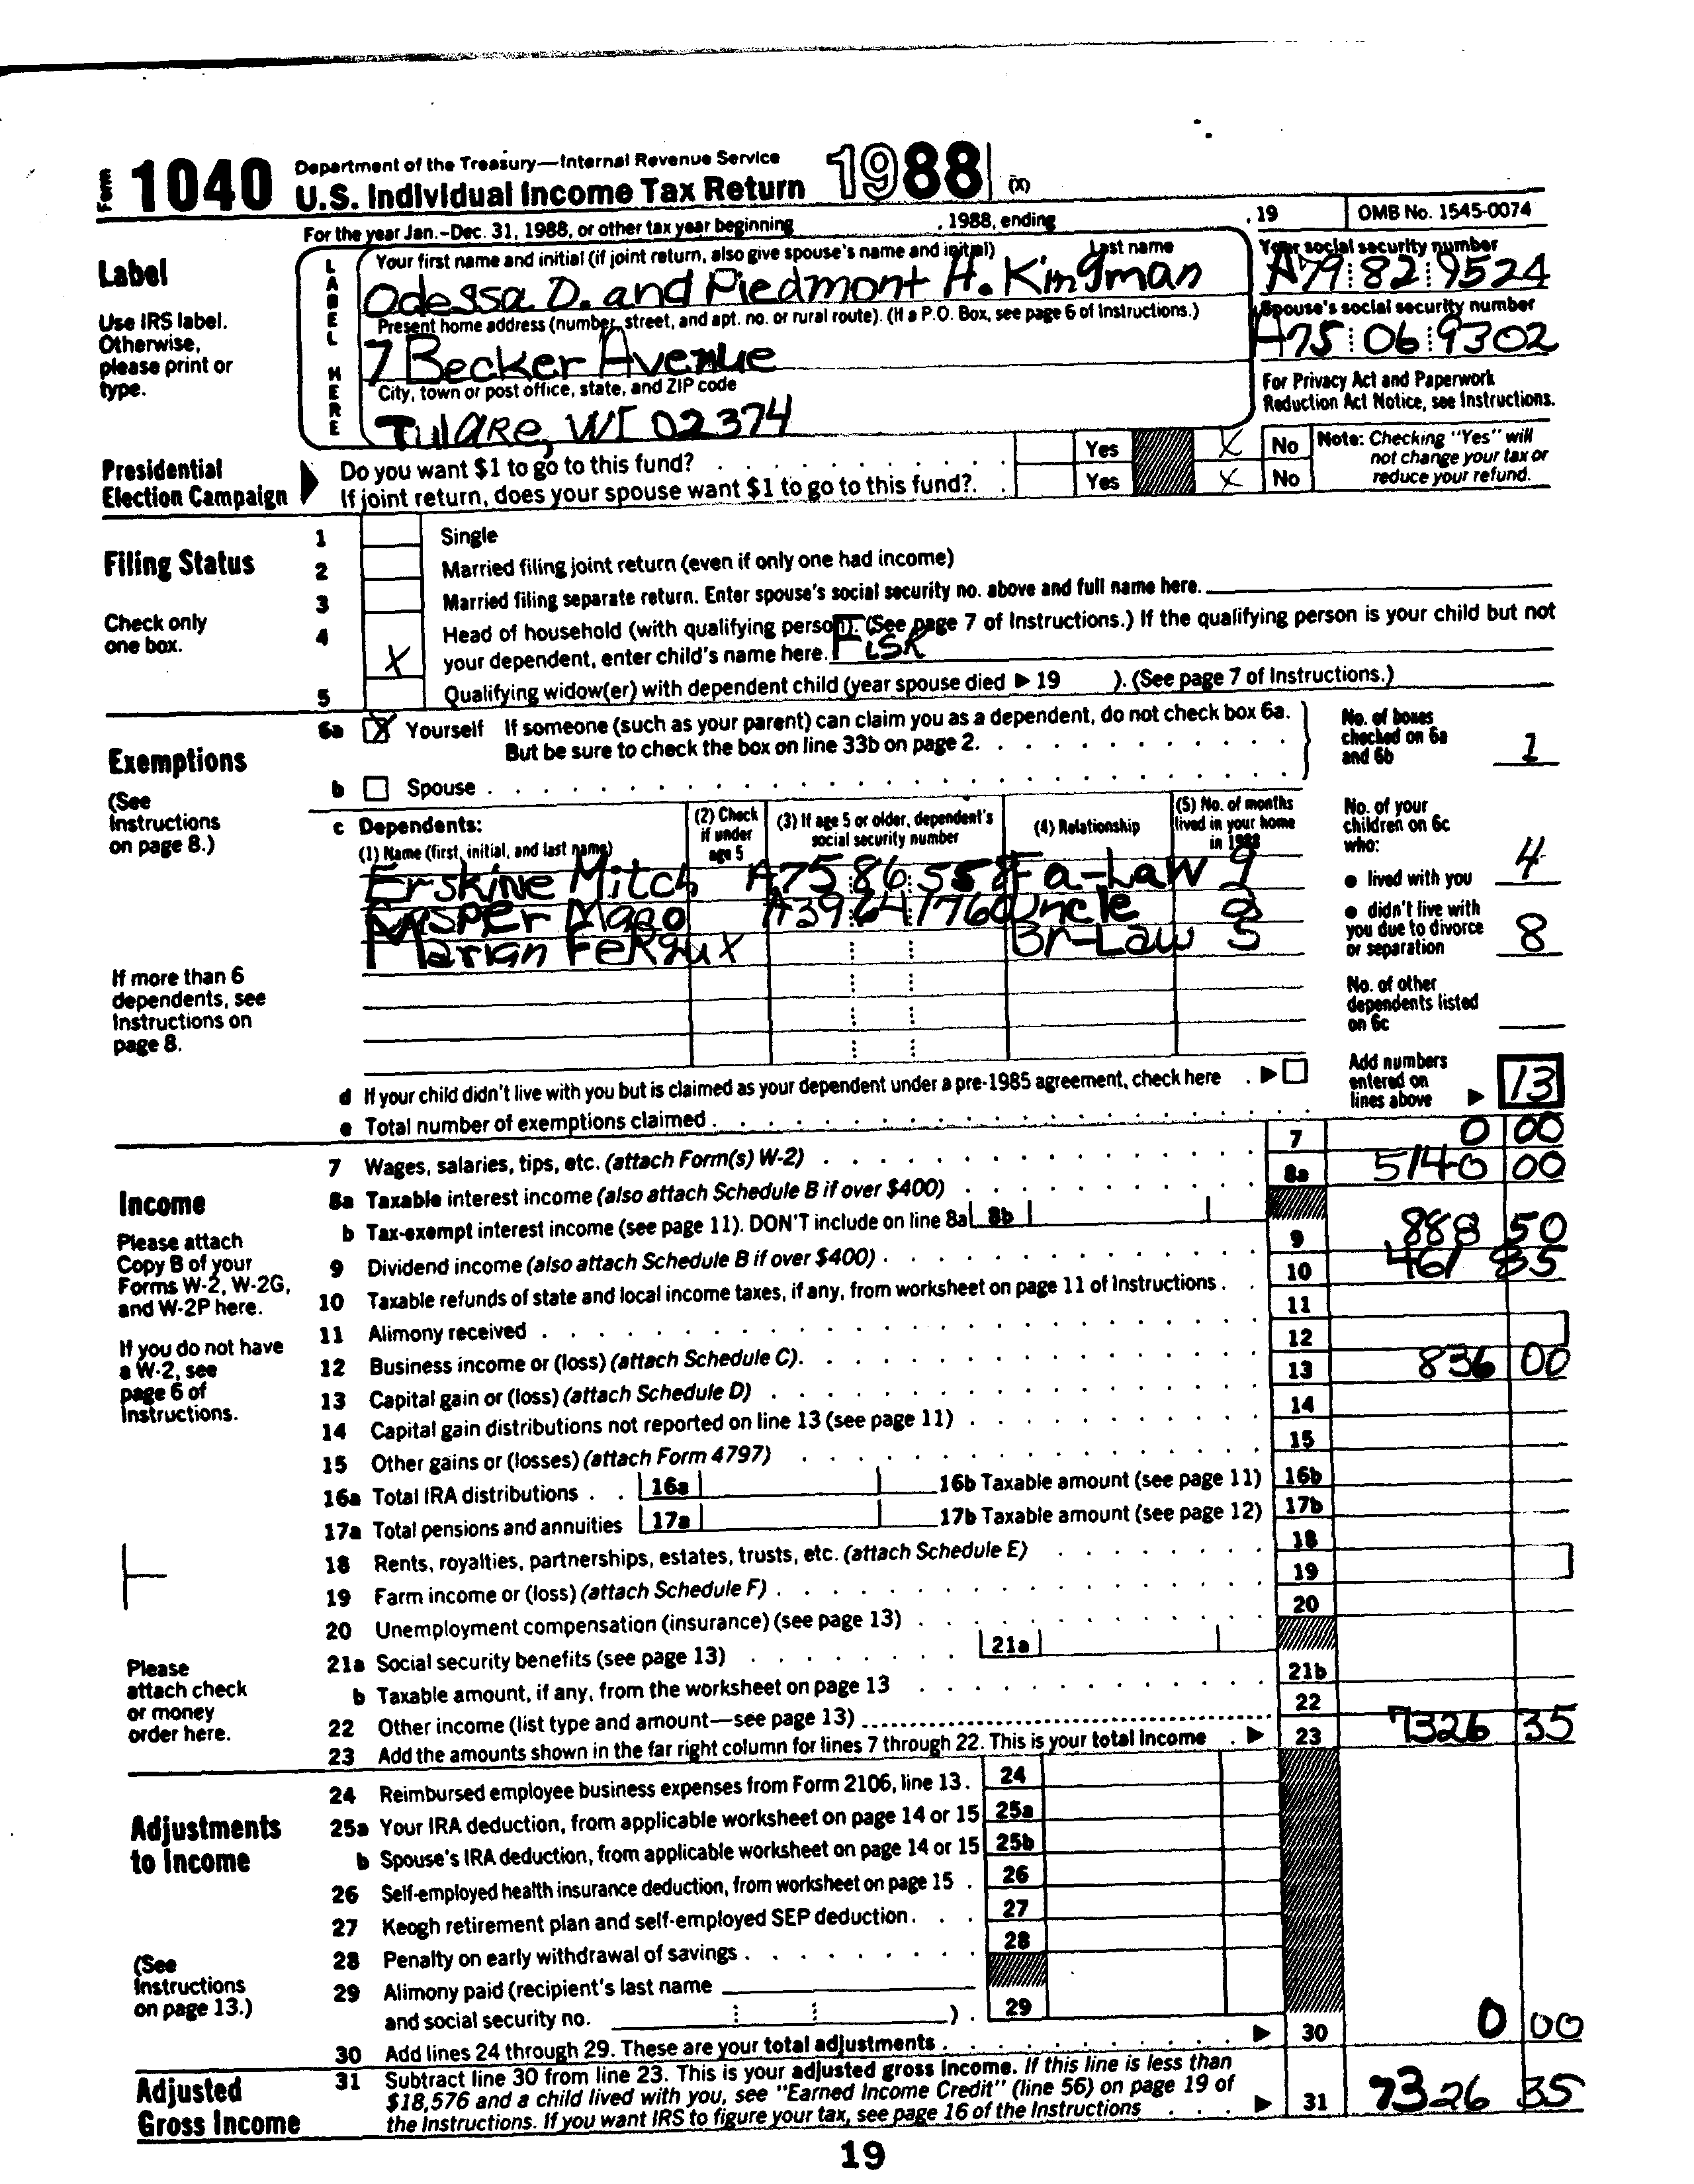 Form 1040 Department of the Treasury—Internal Revenue Service
U.S. Individual Income Tax Return 1988 (X)
For the year Jan.-Dec. 31, 1988, or other tax year beginning , 1988, ending , 19 OMB No. 1545-0074
Label
Use IRS label. Otherwise, please print or type.
LABEL HERE
Your first name and initial (if joint return, also give spouse's name and initial) Last name
Odessa D. and Piedmont H. Kingman
Your social security number
A79 82 9524
Present home address (number, street, and apt. no. or rural route). (If a P.O. Box, see page 6 of Instructions.)
7 Becker Avenue
Spouse's social security number
A75 06 9302
City, town or post office, state, and ZIP code
Tulare, WI 02374
For Privacy Act and Paperwork Reduction Act Notice, see Instructions.
Presidential Election Campaign
Do you want $1 to go to this fund? Yes X No
If joint return, does your spouse want $1 to go to this fund?. Yes X No
Note: Checking "Yes" will not change your tax or reduce your refund.
Filing Status
Check only one box.
1 Single
2 Married filing joint return (even if only one had income)
3 Married filing separate return. Enter spouse's social security no. above and full name here.
4 Head of household (with qualifying person). (See page 7 of Instructions.) If the qualifying person is your child but not
X your dependent, enter child's name here. Fisk
5 Qualifying widow(er) with dependent child (year spouse died ▶ 19 ). (See page 7 of Instructions.)
Exemptions
(See Instructions on page 8.)
6a X Yourself If someone (such as your parent) can claim you as a dependent, do not check box 6a.
But be sure to check the box on line 33b on page 2.
b Spouse
No. of boxes checked on 6a and 6b 1
c Dependents:
(1) Name (first, initial, and last name)
(2) Check if under age 5
(3) If age 5 or older, dependent's social security number
(4) Relationship
(5) No. of months lived in your home in 1988
Erskine Mitch A75 86 558 Fa-Law 9
Mago A39 64 1760 Uncle
Marian Br-Law 5
No. of your children on 6c who:
● lived with you 4
● didn't live with you due to divorce or separation 8
No. of other dependents listed on 6c
If more than 6 dependents, see Instructions on page 8.
d If your child didn't live with you but is claimed as your dependent under a pre-1985 agreement, check here ▶
e Total number of exemptions claimed
Add numbers entered on lines above ▶ 13
Income
Please attach Copy B of your Forms W-2, W-2G, and W-2P here.
If you do not have a W-2, see page 6 of Instructions.
Please attach check or money order here.
7 Wages, salaries, tips, etc. (attach Form(s) W-2) 7 0 00
8a Taxable interest income (also attach Schedule B if over $400) 8a 5140 00
b Tax-exempt interest income (see page 11). DON'T include on line 8a 8b
9 Dividend income (also attach Schedule B if over $400) 9 888 50
10 Taxable refunds of state and local income taxes, if any, from worksheet on page 11 of Instructions 10 461 85
11 Alimony received 11
12 Business income or (loss) (attach Schedule C). 12
13 Capital gain or (loss) (attach Schedule D) 13 836 00
14 Capital gain distributions not reported on line 13 (see page 11) 14
15 Other gains or (losses) (attach Form 4797) 15
16a Total IRA distributions 16a 16b Taxable amount (see page 11) 16b
17a Total pensions and annuities 17a 17b Taxable amount (see page 12) 17b
18 Rents, royalties, partnerships, estates, trusts, etc. (attach Schedule E) 18
19 Farm income or (loss) (attach Schedule F) 19
20 Unemployment compensation (insurance) (see page 13) 20
21a Social security benefits (see page 13) 21a
b Taxable amount, if any, from the worksheet on page 13 21b
22 Other income (list type and amount—see page 13) 22
23 Add the amounts shown in the far right column for lines 7 through 22. This is your total income ▶ 23 7326 35
Adjustments to Income
(See Instructions on page 13.)
24 Reimbursed employee business expenses from Form 2106, line 13. 24
25a Your IRA deduction, from applicable worksheet on page 14 or 15 25a
b Spouse's IRA deduction, from applicable worksheet on page 14 or 15 25b
26 Self-employed health insurance deduction, from worksheet on page 15 26
27 Keogh retirement plan and self-employed SEP deduction 27
28 Penalty on early withdrawal of savings 28
29 Alimony paid (recipient's last name
and social security no. ) 29
30 Add lines 24 through 29. These are your total adjustments ▶ 30 0 00
Adjusted Gross Income
31 Subtract line 30 from line 23. This is your adjusted gross income. If this line is less than
$18,576 and a child lived with you, see "Earned Income Credit" (line 56) on page 19 of
the Instructions. If you want IRS to figure your tax, see page 16 of the Instructions ▶ 31 7326 35
19